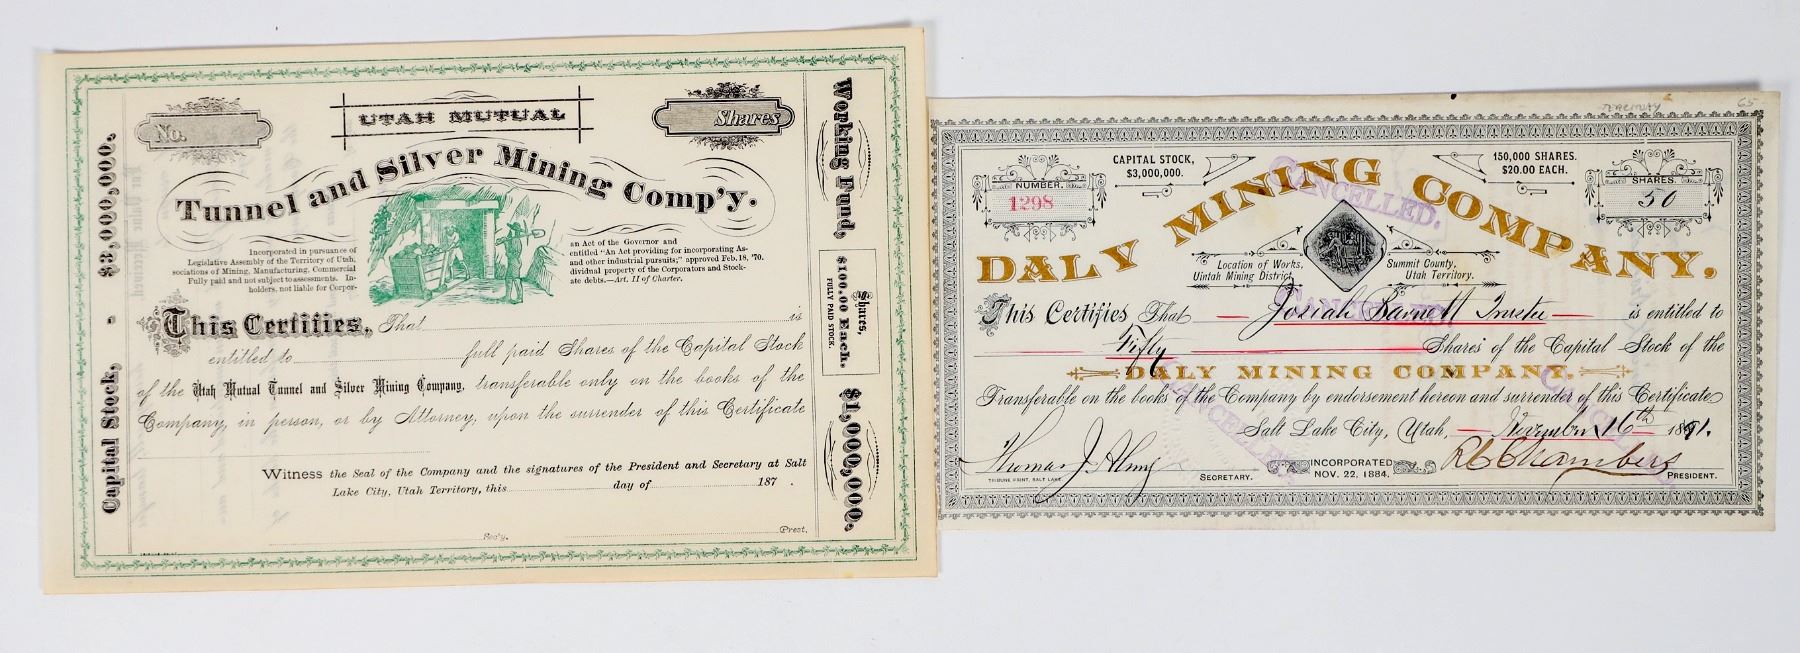 No.
UTAH MUTUAL
Shares
Tunnel and Silver Mining Comp'y.
Incorporated in pursuance of
Legislative Assembly of the Territory of Utah,
sociations of Mining, Manufacturing, Commercial
Fully paid and not subject to assessments. In-
holders, not liable for Corpor-
an Act of the Governor and
entitled "An Act providing for incorporating As-
and other industrial pursuits;" approved Feb. 18, '70.
dividual property of the Corporators and Stock-
ate debts.—Art. II of Charter.
Capital Stock, $3,000,000.
Working Fund, $1,000,000.
Shares, $100,00 Each.
FULLY PAID STOCK.
This Certifies, That is
entitled to full paid Shares of the Capital Stock
of the Utah Mutual Tunnel and Silver Mining Company, transferable only on the books of the
Company, in person, or by Attorney, upon the surrender of this Certificate
Witness the Seal of the Company and the signatures of the President and Secretary at Salt
Lake City, Utah Territory, this day of 187 .
Sec'y.
Prest.
Territory 65
NUMBER.
1298
CAPITAL STOCK,
$3,000,000.
150,000 SHARES.
$20.00 EACH.
SHARES.
50
DALY MINING COMPANY.
Location of Works,
Uintah Mining District,
Summit County,
Utah Territory.
This Certifies That Josiah Barnett Trustee is entitled to
Fifty Shares of the Capital Stock of the
DALY MINING COMPANY,
Transferable on the books of the Company by endorsement hereon and surrender of this Certificate
Salt Lake City, Utah, November 16th 1891.
INCORPORATED
NOV. 22, 1884.
SECRETARY.
R C Chambers
PRESIDENT.
TRIBUNE PRINT, SALT LAKE.
CANCELLED.
CANCELLED.
CANCELLED.
CANCELLED.